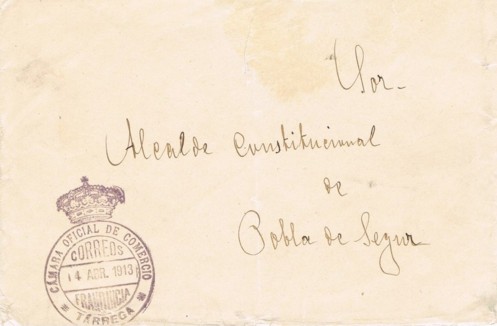 Sor.
Alcalde Constitucional
de
Pobla de Segur
CÁMARA OFICIAL DE COMERCIO
CORREOS
14 ABR. 1913
FRANQUICIA
TÁRREGA